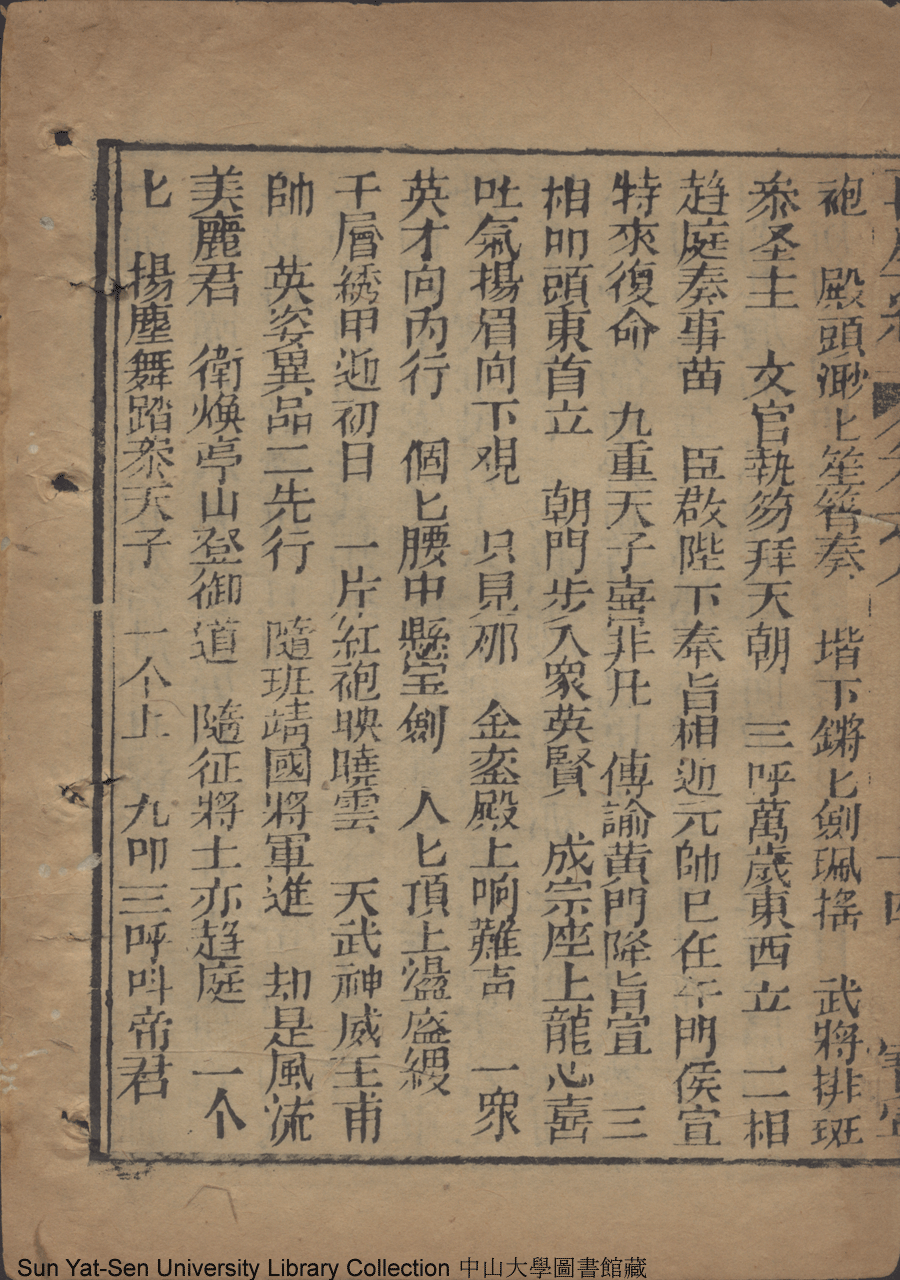 袍　殿頭渺匕笙簮奏　堦下鏘匕劍珮搖　武將排班
叅圣主　文官執笏拜天朝　三呼萬歲東西立　二相
趋庭奏事苗　臣啟陛下奉旨相迎元帥已在午門侯宣
特來復命　九重天子喜非凡　傳諭黄門降旨宣　三
相叩頭東首立　朝門步入衆英賢　成宗座上龍心喜
吐氣揚眉向下观　只見那　金銮殿上响难声　一衆
英才向內行　個匕腰中懸宝劍　人匕頂上盪盛纓
千層綉甲迎初日　一片紅袍映曉雲　天武神威王甫
帥　英姿異品二先行　隨班靖國將軍進　却是風流
美麗君　衛煥亭山登御道　隨征將士亦趋庭　一个
匕　揚塵舞蹈叅天子　一个上　九叩三呼呌帝君
十四
Sun Yat-Sen University Library Collection 中山大學圖書館藏